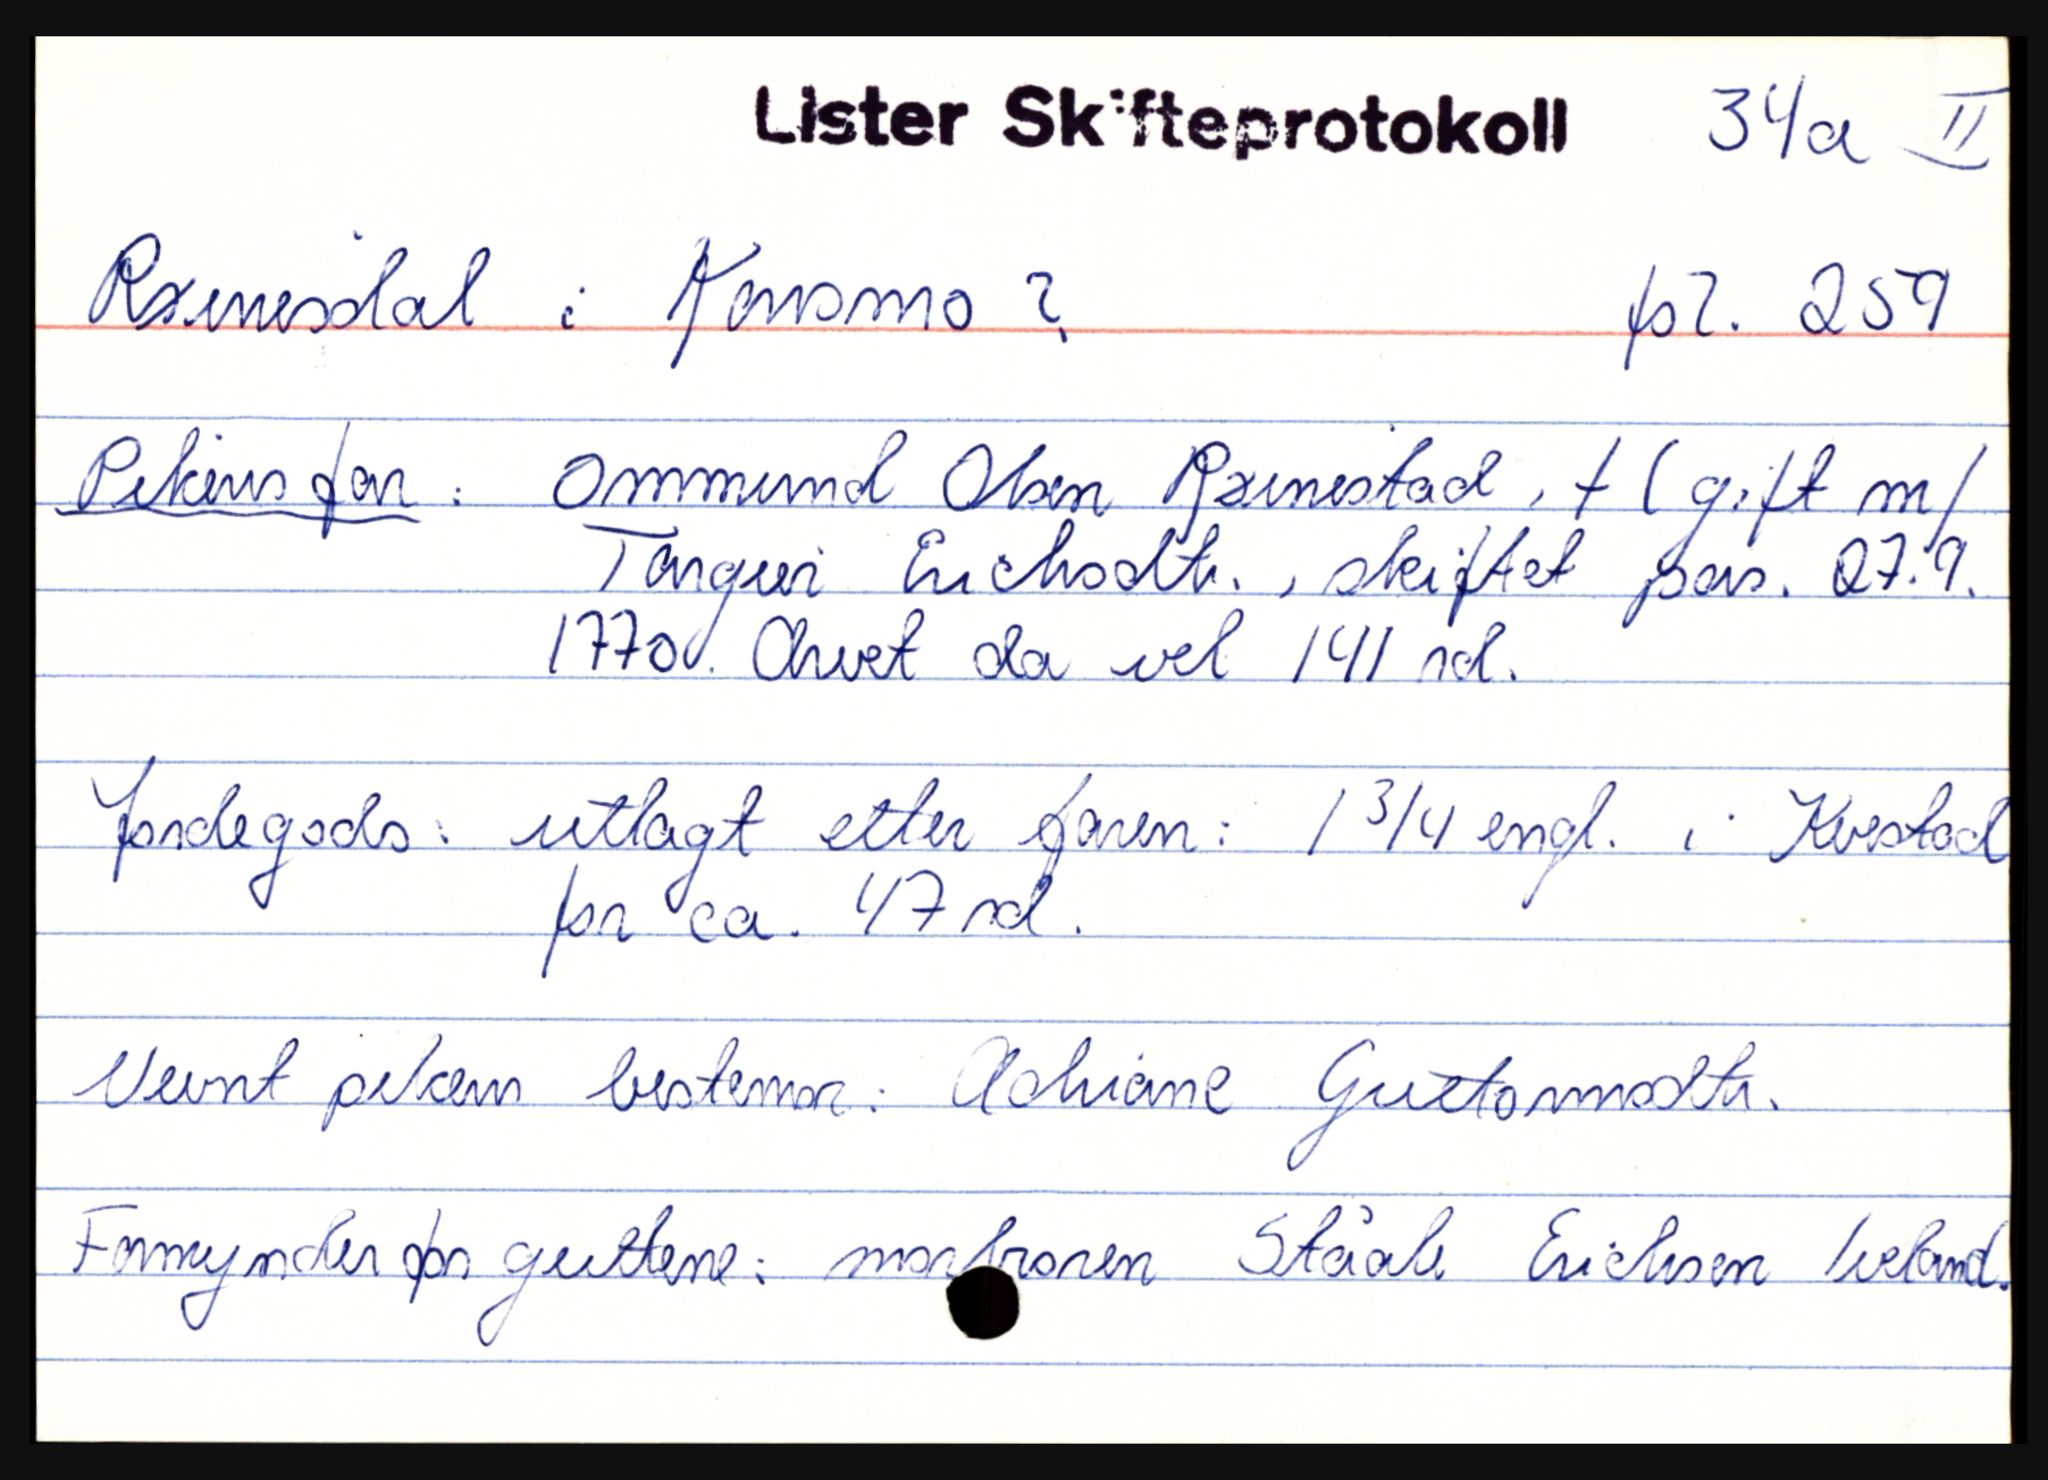 Lister Skifteprotokoll 34a II
Røinesdal i Konsmo? fol. 259
Pikens far: Ommund Olsen Røinestad, † (gift m/
Torgvei Erichsdtr., skiftet pas. 27.9.
1770. Arvet da vel 141 rd.
Jordegods: utlagt etter faren: 1 3/4 engl. i Kvestad
for ca. 47 rd.
Nevnt piken bestemor: Adriane Guttormsdtr.
Formynder for guttene: morbroren Ståale Erichsen Iveland.